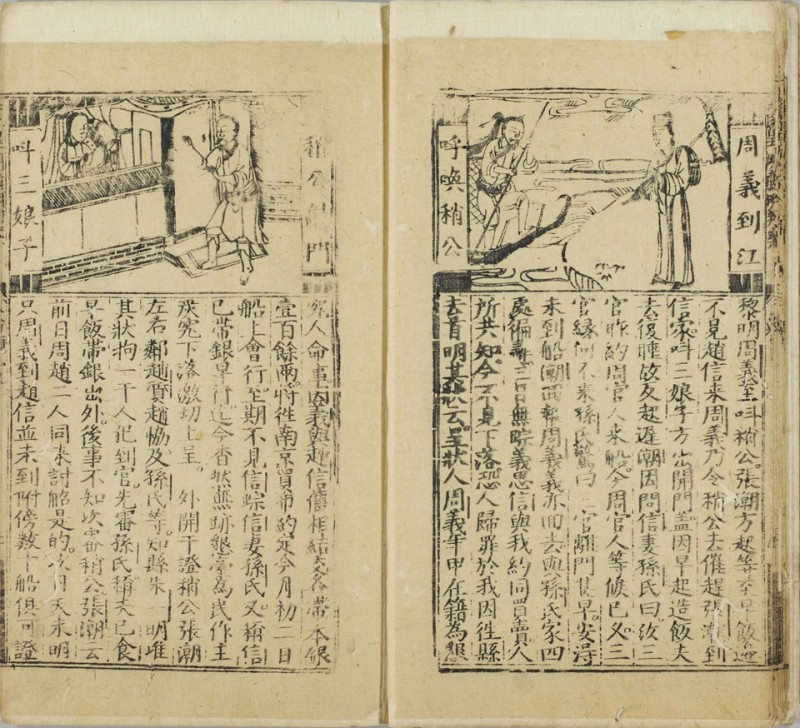 周義到江
呼喚稍公
黎明周義至叫稍公張潮方起等至早飯迎
不見趙信來周義乃令稍公去催趙張潮到
信家叫三娘子方出開門蓋因早起造飯夫
去後睡故反起遲潮因問信妻孫氏曰汝三
官昨約周官人來船今周官人等候已久三
官緣何不來孫氏驚曰三官離門甚早安得
未到船潮回報周義義亦回去與孫氏家四
處徧尋三日無踪義思信與我約同買賣人
所共知今不見下落恐人歸罪於我因往縣
去首明其狀云呈狀人周義年甲在籍為懇
稍公叩門
叫三娘子
究人命事因義與趙信僖相結交各帶本銀
壹百餘兩將往南京買布約定今月初二日
船上會行至期不見信踪信妻孫氏又稱信
已帶銀早行迄今杳然無跡懇臺為民作主
究下落激切上呈 外開干證稍公張潮
左右鄰趙質趙協及孫氏等知縣朱一明准
其狀拘一干人犯到官先審孫氏稱夫已食
早飯帶銀出外後事不知次審稍公張潮云
前日周趙二人同來討船是的次日天未明
只周義到趙信並未到附傍數十船俱可證